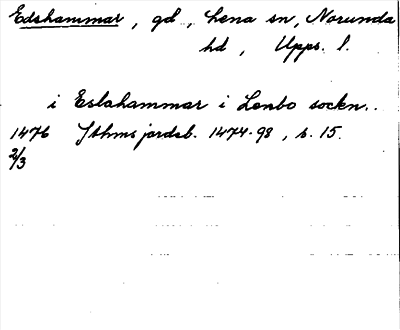 Edshammar, gd, Lena sn, Norunda
hd, Upps. l.
i Eslahammar i Lenbo sockn..
1476 Sthms jordeb. 1474-98, s. 15.
2/3